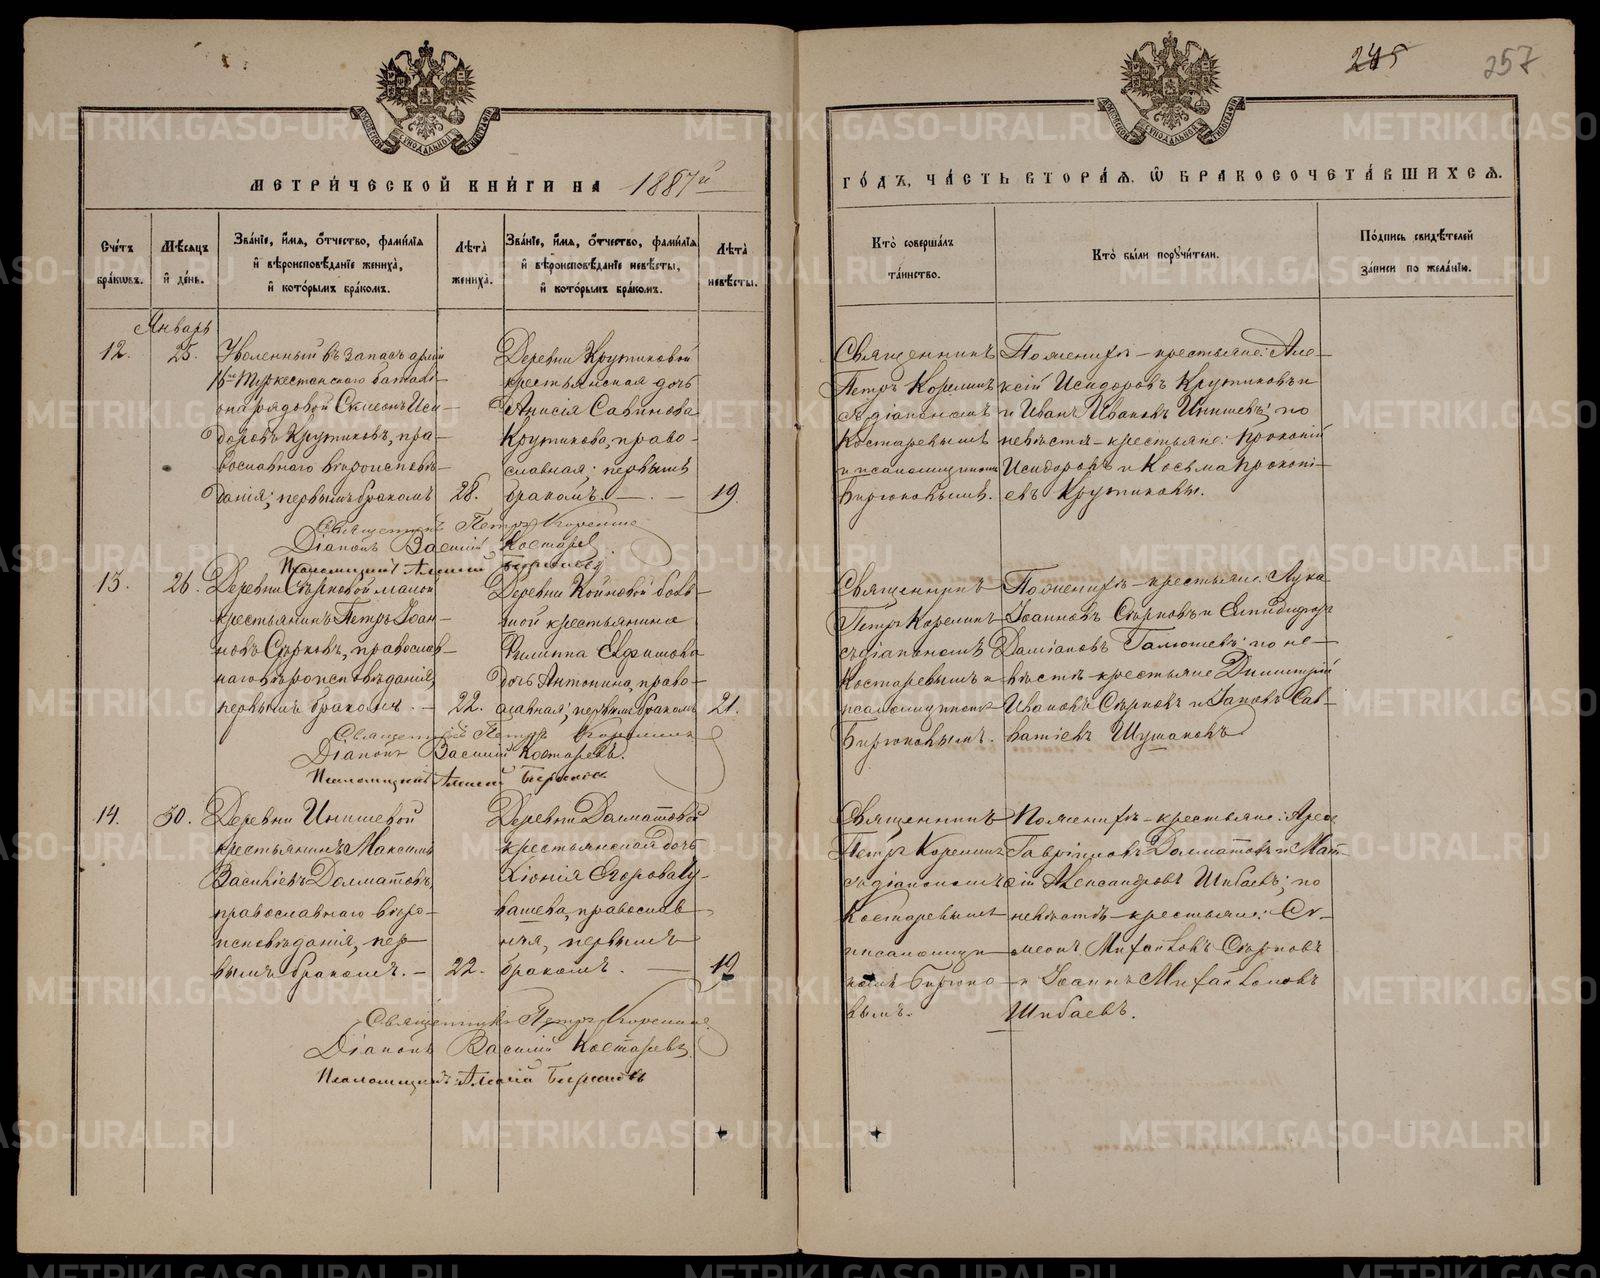 245 257
МЕТРИЧЕСКОЙ КНИГИ НА 1887й
ГОДЪ, ЧАСТЬ ВТОРАЯ, Ѿ БРАКОСОЧЕТАВШИХСЯ.
Счетъ браковъ.
Мѣсяцъ и день.
Званіе, имя, отчество, фамилія
и вѣроисповѣданіе жениха,
и которымъ бракомъ.
Лѣта жениха.
Званіе, имя, отчество, фамилія
и вѣроисповѣданіе невѣсты,
и которымъ бракомъ.
Лѣта невѣсты.
Кто совершалъ
таинство.
Кто были поручители.
Подпись свидѣтелей
записи по желанію.
Январь
12. 25.
Уволенный въ запасъ арміи
Туркестанскаго баталі-
она рядовой Симеонъ Иси-
доровъ Крутиковъ, пра-
вославнаго вѣроисповѣ-
данія; первымъ бракомъ
28.
Деревни Крутиковой
крестьянская дочь
Анисія Савинова
Крутикова, право-
славная; первымъ
бракомъ. — . —
19.
Священникъ
Петръ Корелинъ
съ діакономъ
Костаревымъ
и псаломщикомъ
Бирюковымъ.
По женихѣ – крестьяне: Але-
ксій Исидоровъ Крутиковъ и
и Иванъ Ивановъ Инишевъ; по
невѣстѣ – крестьяне: Прокопій
Исидоровъ и Косьма Прокопі-
евъ Крутиковы.
Священникъ Петръ Корелинъ
Діаконъ Василій Костаревъ
Псаломщикъ Алексій Бирюковъ
13. 26.
Деревни Сѣрковой малой
крестьянинъ Петръ Іоан-
новъ Сѣрковъ, православ-
наго вѣроисповѣданія,
первымъ бракомъ. –
22.
Деревни Койновой боль-
шой крестьянина
Филиппа Ефимова
дочь Антонина, право-
славная; первымъ бракомъ
21.
Священникъ
Петръ Корелинъ
съ діакономъ
Костаревымъ и
псаломщикомъ
Бирюковымъ.
По женихѣ – крестьяне: Лука
Іоанновъ Сѣрковъ и
Даміановъ Галюшевъ; по не-
вѣстѣ – крестьяне Димитрій
Ивановъ Сѣрковъ и Іаковъ Сав-
ватіевъ Шушаковъ
Священникъ Петръ Корелинъ
Діаконъ Василій Костаревъ.
Псаломщикъ Алексій Бирюковъ
14. 30.
Деревни Инишевой
крестьянинъ Максимъ
Василіевъ Долматовъ,
православнаго вѣро-
исповѣданія, пер-
вымъ бракомъ. –
22.
Деревни Долматовой
крестьянская дочь
Хіонія Егорова Чу-
вашева, православ-
ная, первымъ
бракомъ. —
19
Священникъ
Петръ Корелинъ
съ діакономъ
Костаревымъ
и псаломщи-
комъ Бирюко-
вымъ.
По женихѣ – крестьяне:
Гавріиловъ Долматовъ и Мат-
ѳій Александровъ Шибаевъ; по
невѣстѣ – крестьяне: Си-
меонъ Михайловъ Сѣрковъ
и Іоаннъ Михайловъ
Шибаевъ.
Священникъ Петръ Корелинъ
Діаконъ Василій Костаревъ
Псаломщикъ Алексій Бирюковъ
METRIKI.GASO-URAL.RU